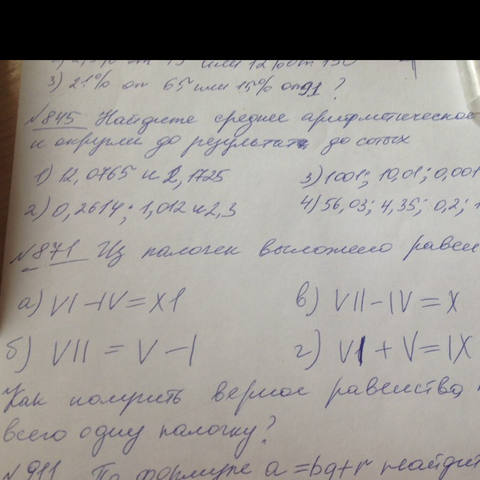 от 15 или 12% от 150
3) 21% от 65 или 15% от 91 ?
№845 Найдите среднее арифметическое
и округли до результат до сотых
1) 12,0765 и 2,1725
3) 1001; 10,01; 0,001
2) 0,2614; 1,012 и 2,3
4) 56,03; 4,35; 0,2;
№871 Из палочек выложено равен
а) VI-IV=XI
в) VII-IV=X
б) VII=V-I
г) VI+V=IX
Как получить верное равенство
всего одну палочку?
№911 По формуле a=bq+r найдит